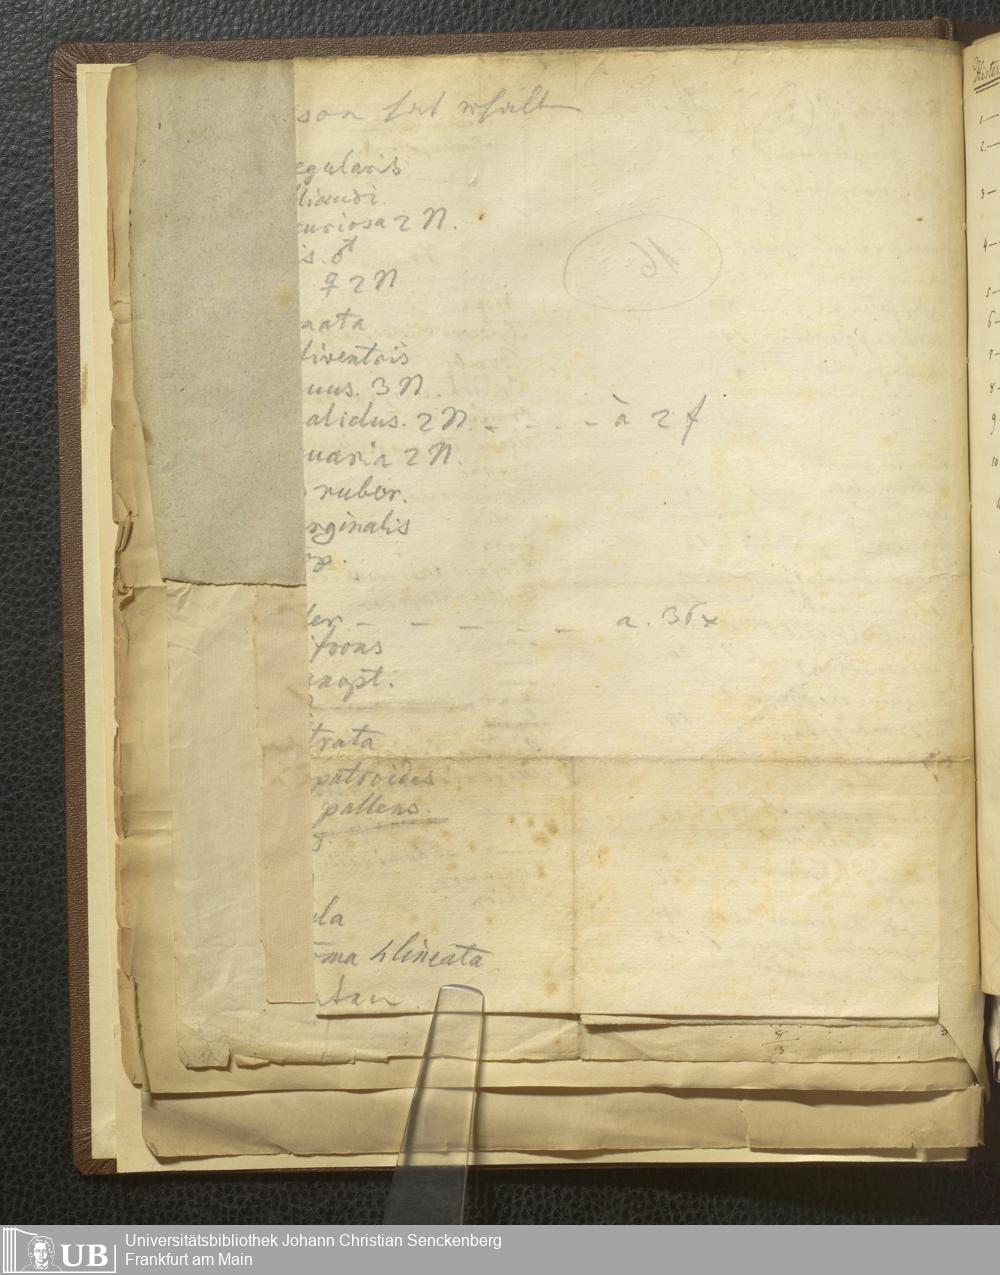 son hat erhalten
egularis
liaudi
curiosa 2 N.
is. ♂
♀ 2 N
nata
liventris
nus. 3 N
alidus. 2 N. - - - - à 2 f
uaria 2 N.
ruber.
arginalis
or.
16
der - - - - - a. 36 x
ifrons
anopt:
trata
patroides
pallens.
s
ula
oma 4lineata
8
3
Hister
1—
2—
3—
4—
5—
6—
7—
8—
9
10
UB
Universitätsbibliothek Johann Christian Senckenberg
Frankfurt am Main